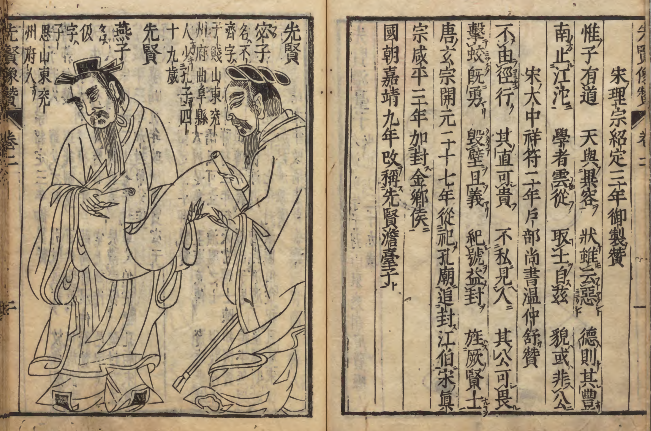 先賢像贊 卷二 一
宋理宗紹定三年御製贊
惟子有道 天與異容 狀雖云惡 德則其豐
南止江沱 學者雲從 取士自茲 貌或非公
宋大中祥符二年戶部尚書溫仲舒贊
不由徑行 其直可貴 不私見人 其公可畏
擊蛟既勇 毀璧且義 紀號益封 旌厥賢士
唐玄宗開元二十七年從祀孔廟追封江伯宋真
宗咸平三年加封金鄉侯
國朝嘉靖九年改稱先賢澹臺子
先賢
宓子
名不
齊字
子賤山東兗
州府曲阜縣
人少孔子四
十九歲
先賢
燕子
名伋
字子
思山東兗
州府人
先賢像贊 卷二 二